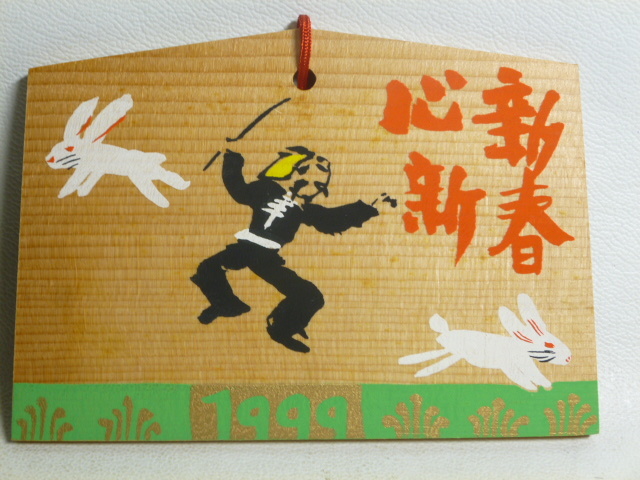 新春
心新
1999